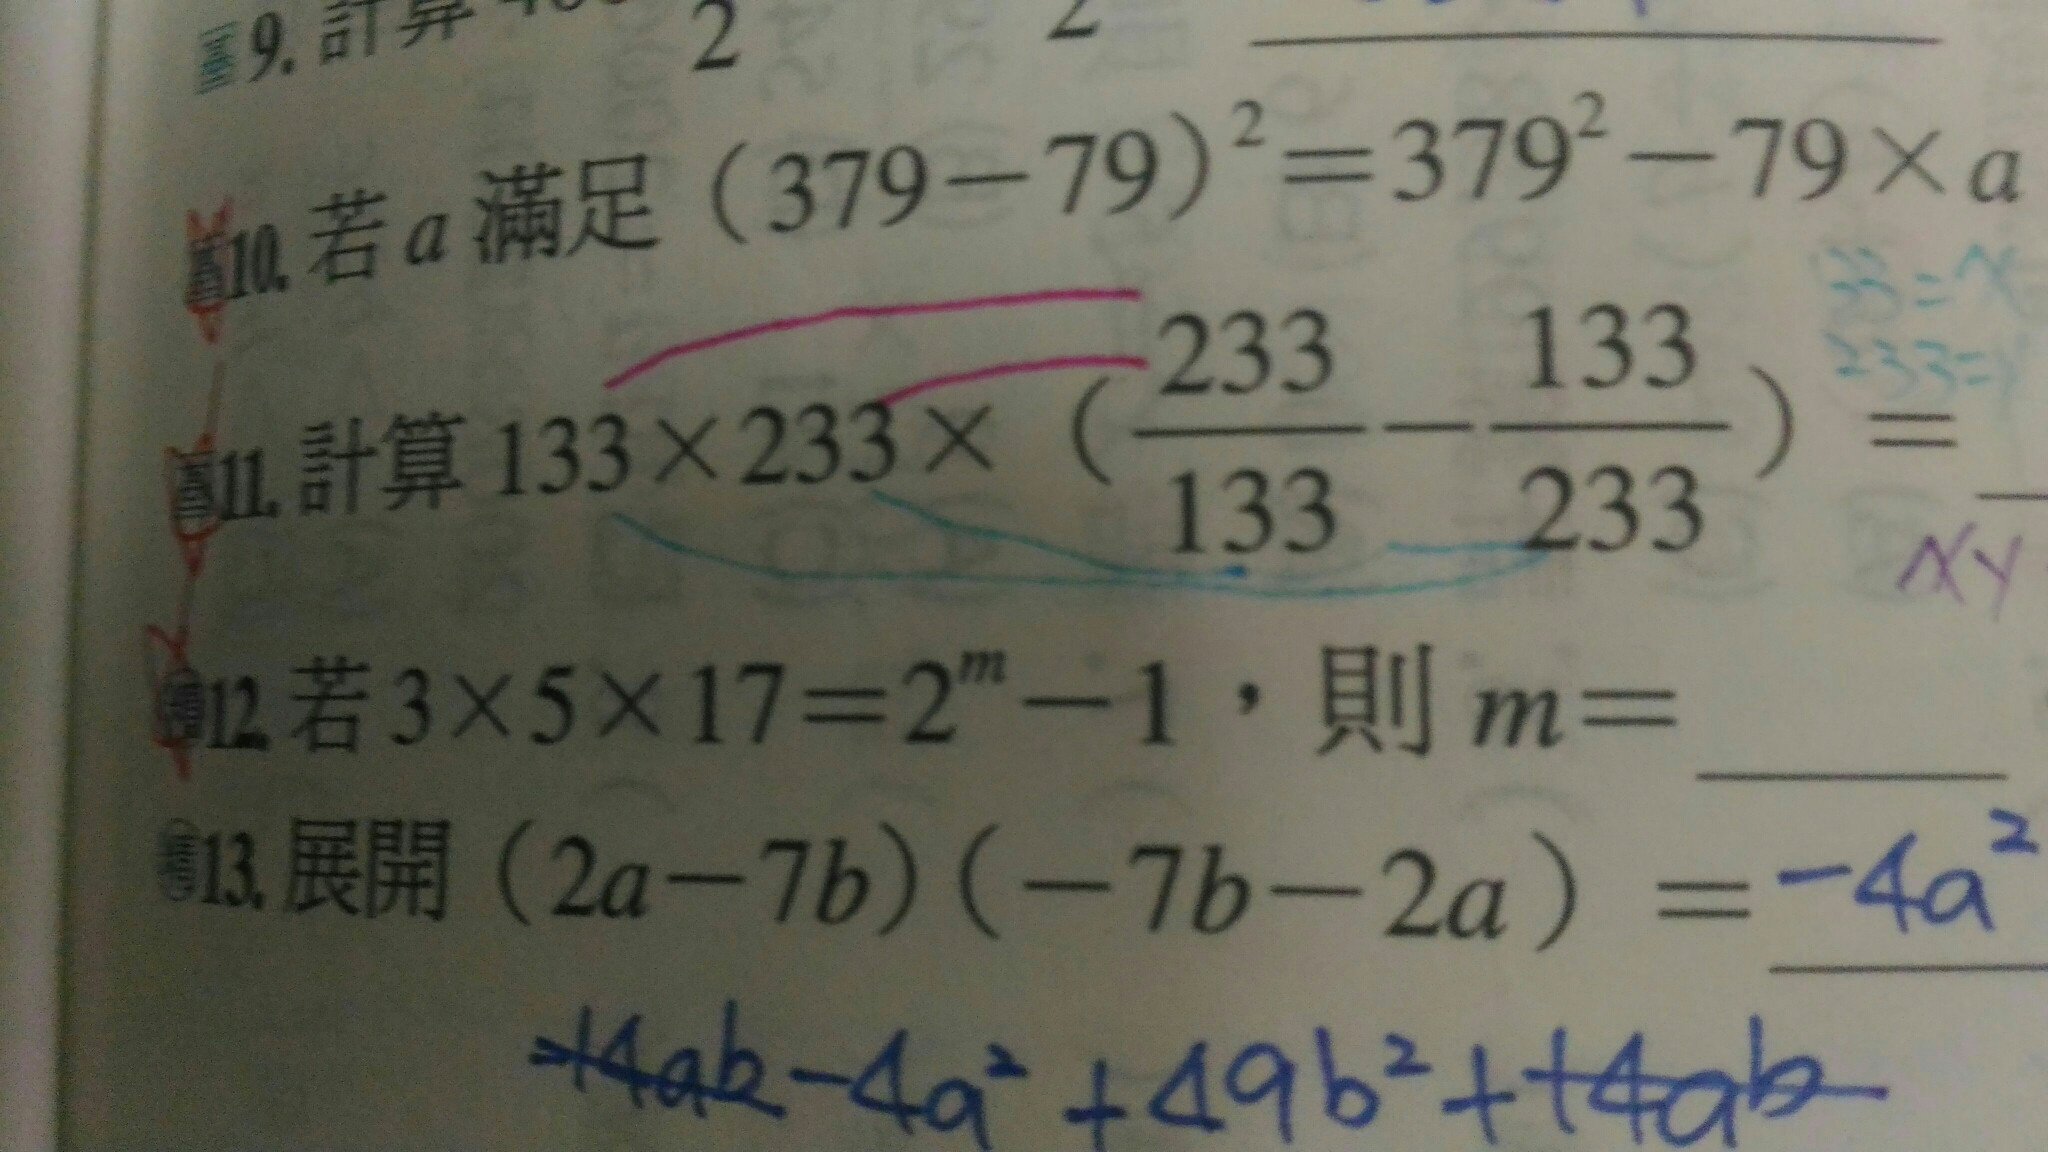 9. 計算
2 2
10. 若 a 滿足（379－79）²＝379²－79×a
33=x
11. 計算 133×233×（233/133－133/233）＝
233=y
xy
12. 若 3×5×17＝2^m－1，則 m＝
13. 展開（2a－7b）（－7b－2a）＝ -4a²
-14ab-4a²+49b²+14ab